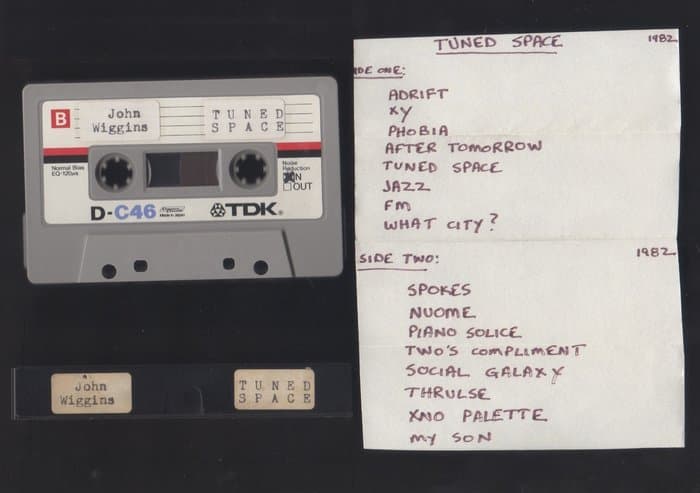 B
John
Wiggins
TUNED
SPACE
Normal Bias
EQ-120µs
Noise
Reduction
IN
OUT
D-C46
Made in Japan
TDK
John
Wiggins
TUNED
SPACE
TUNED SPACE
1982.
IDE ONE:
ADRIFT
XY
PHOBIA
AFTER TOMORROW
TUNED SPACE
JAZZ
FM
WHAT CITY?
SIDE TWO:
1982.
SPOKES
NUOME
PIANO SOLICE
TWO'S COMPLIMENT
SOCIAL GALAXY
THRULSE
XNO PALETTE
MY SON